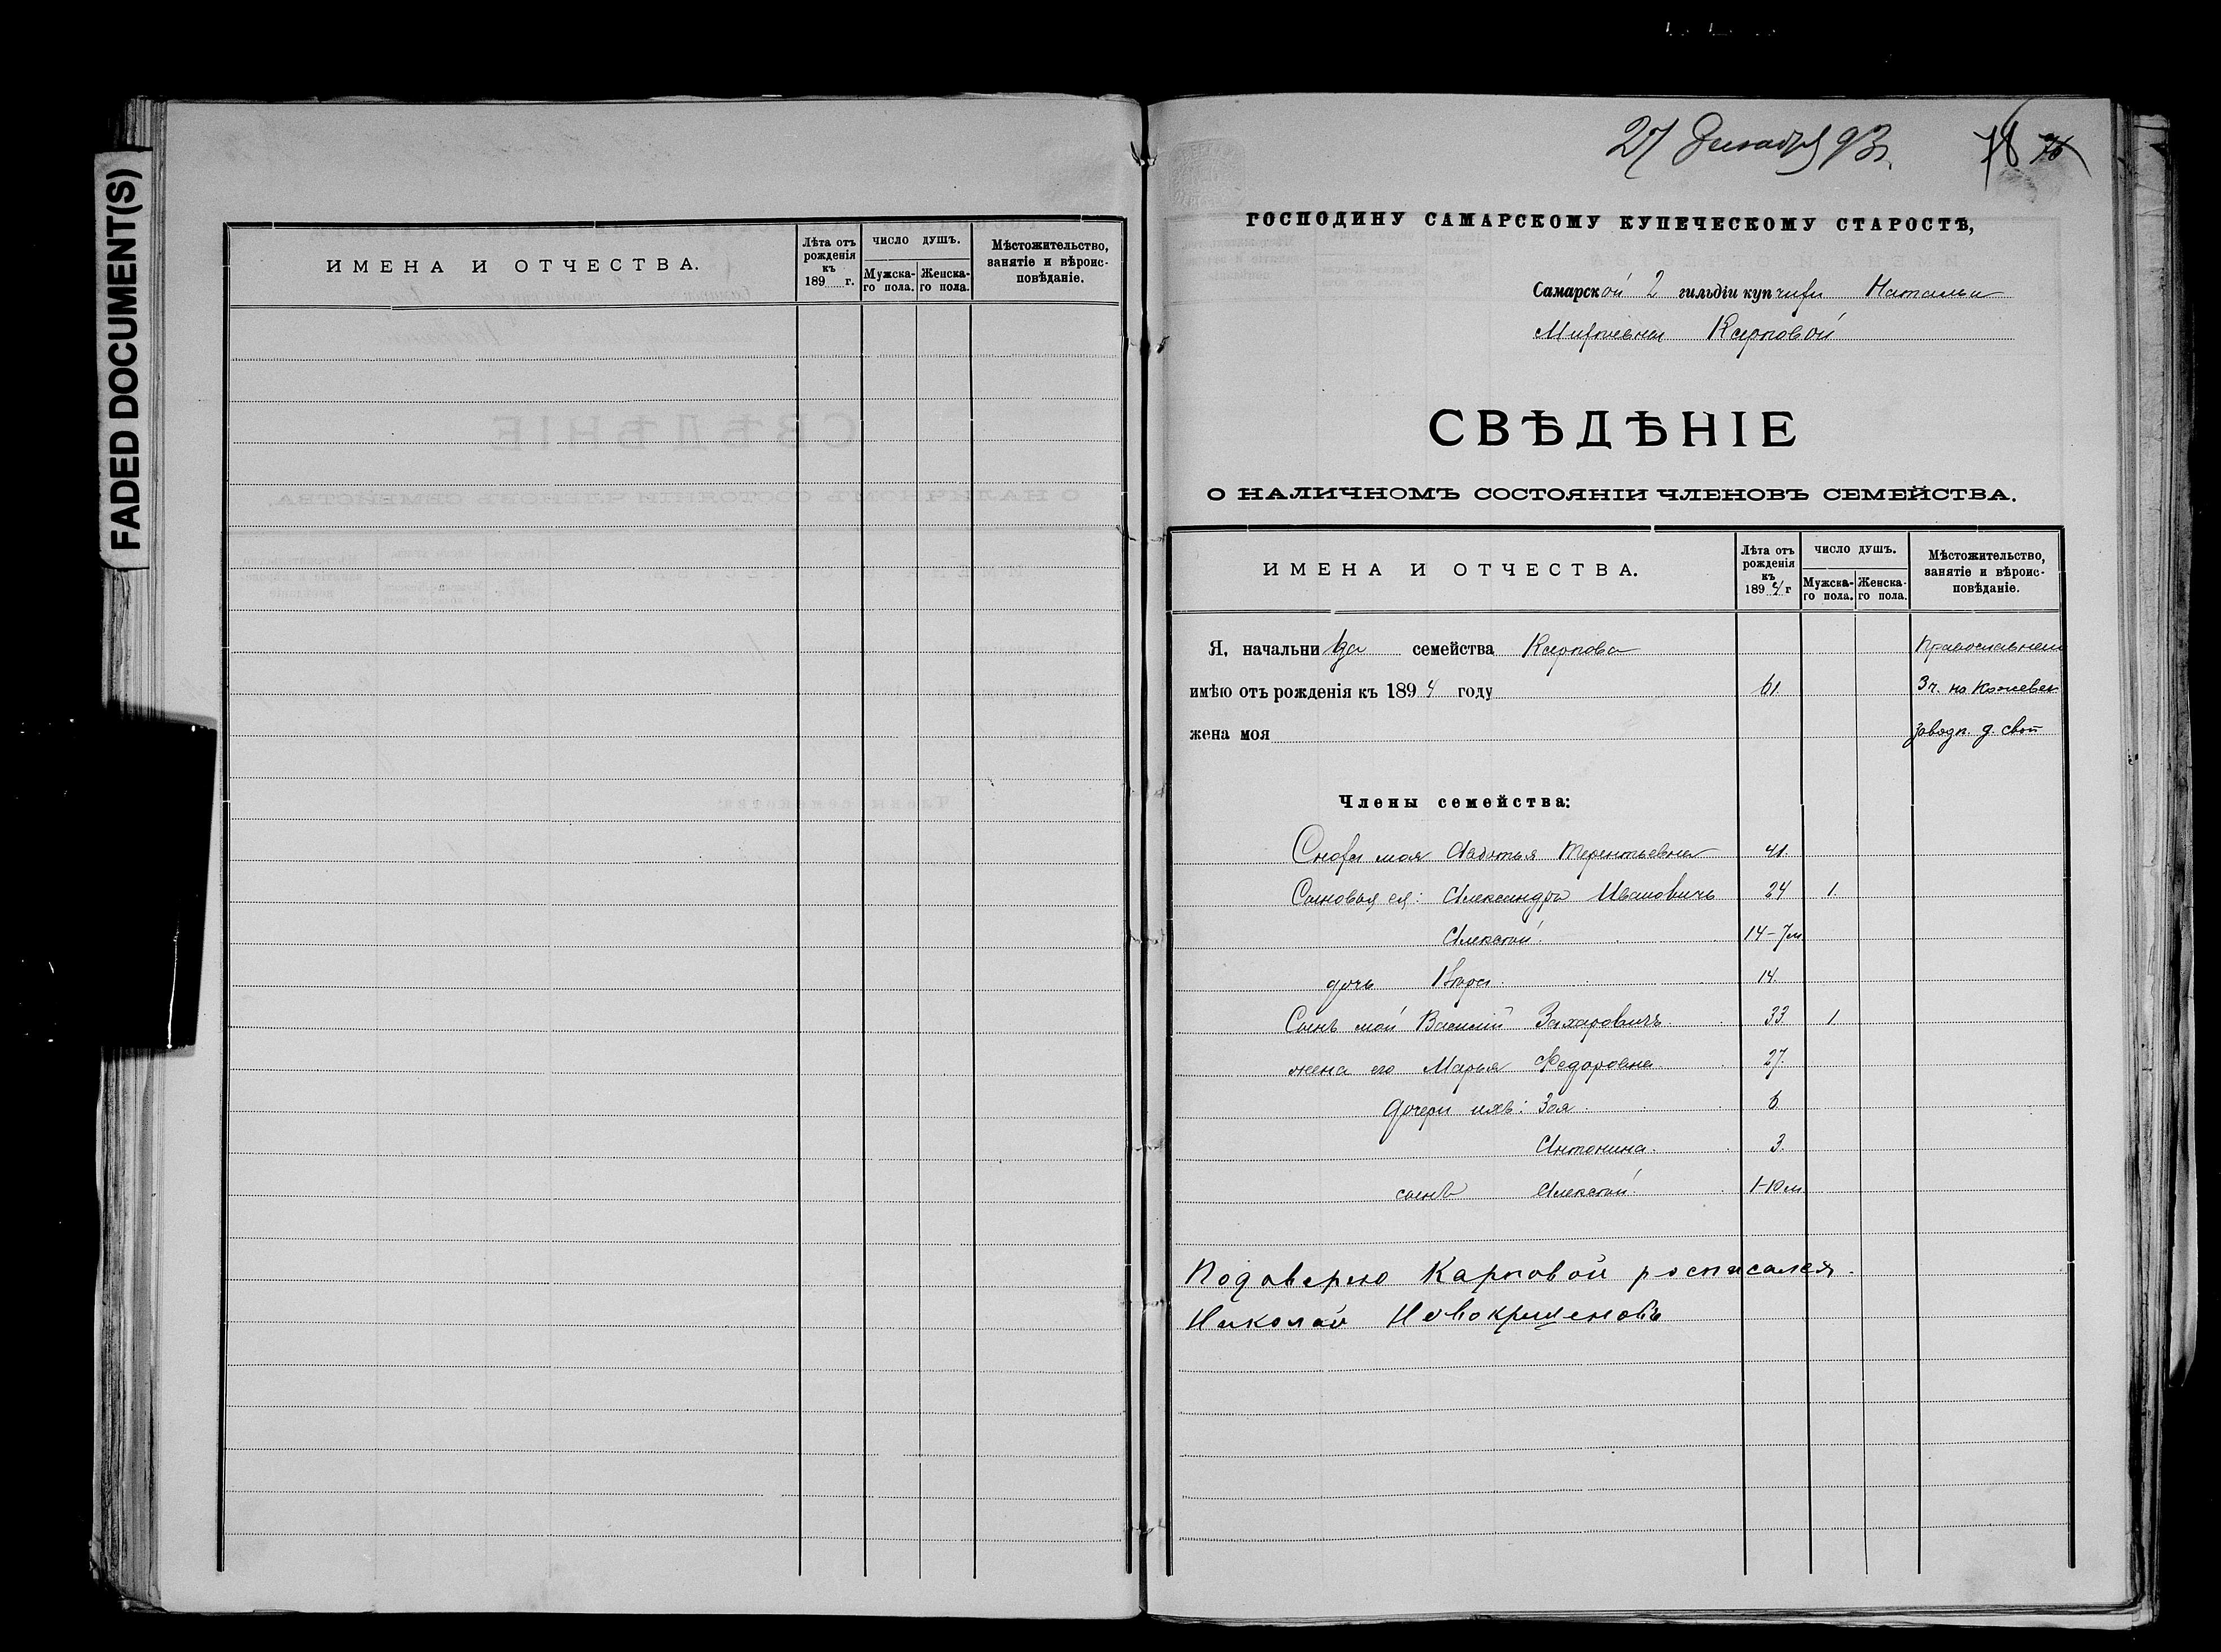 FADED DOCUMENT(S)
ИМЕНА И ОТЧЕСТВА.
Лѣта отъ рожденія къ 189 г.
ЧИСЛО ДУШЪ.
Мужска-го пола.
Женска-го пола.
Мѣстожительство, занятіе и вѣроис-повѣданіе.
27 Декабря 93 г.
78 76
ГОСПОДИНУ САМАРСКОМУ КУПЕЧЕСКОМУ СТАРОСТѢ,
Самарской 2 гильдіи купчихи Натальи
Карповой
СВѢДѢНІЕ
О НАЛИЧНОМЪ СОСТОЯНІИ ЧЛЕНОВЪ СЕМЕЙСТВА.
ИМЕНА И ОТЧЕСТВА.
Лѣта отъ рожденія къ 1894 г
ЧИСЛО ДУШЪ.
Мужска-го пола.
Женска-го пола.
Мѣстожительство, занятіе и вѣроис-повѣданіе.
Я, начальница семейства Карпова Православная
имѣю отъ рожденія къ 1894 году 61. 3 ч. на Кожевен
жена моя заводѣ. д. свой
Члены семейства:
Сноха моя Авдотья Терентьевна 41.
Сыновья ея: Александръ Ивановичъ 24 1.
Алексѣй 14-7м
дочь Вѣра 14.
Сынъ мой Василій Захаровичъ 33 1
жена его Марья Федоровна 27.
Дочери ихъ: Зоя 6
Антонина 3.
сынъ Алексѣй 1-10м
Подоверею Карповой росписался
Николай Новокрещеновъ